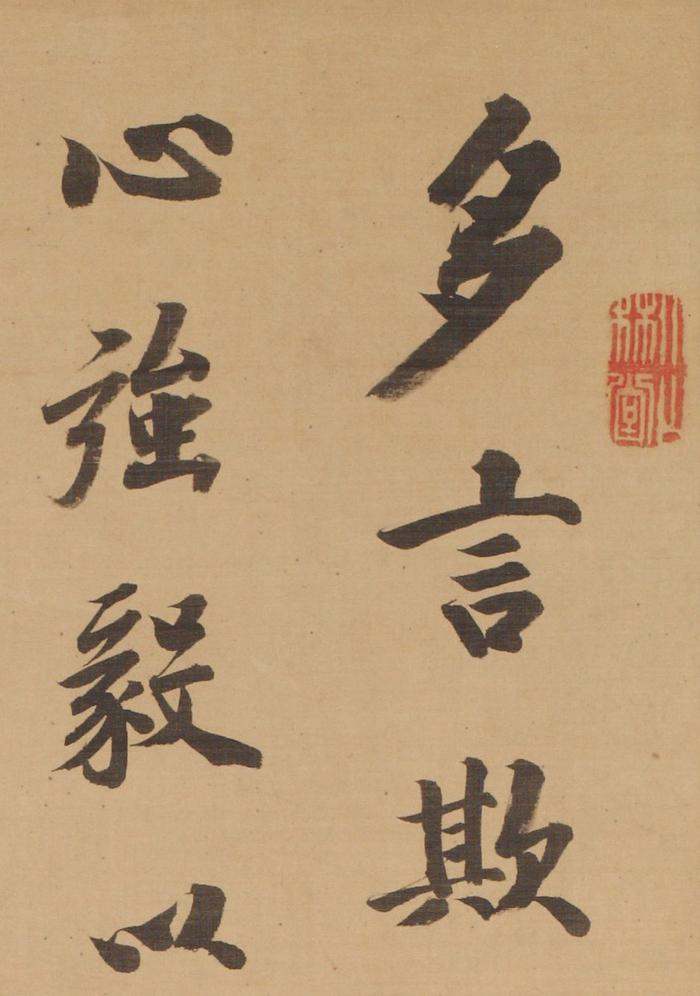 多言欺
心強毅以